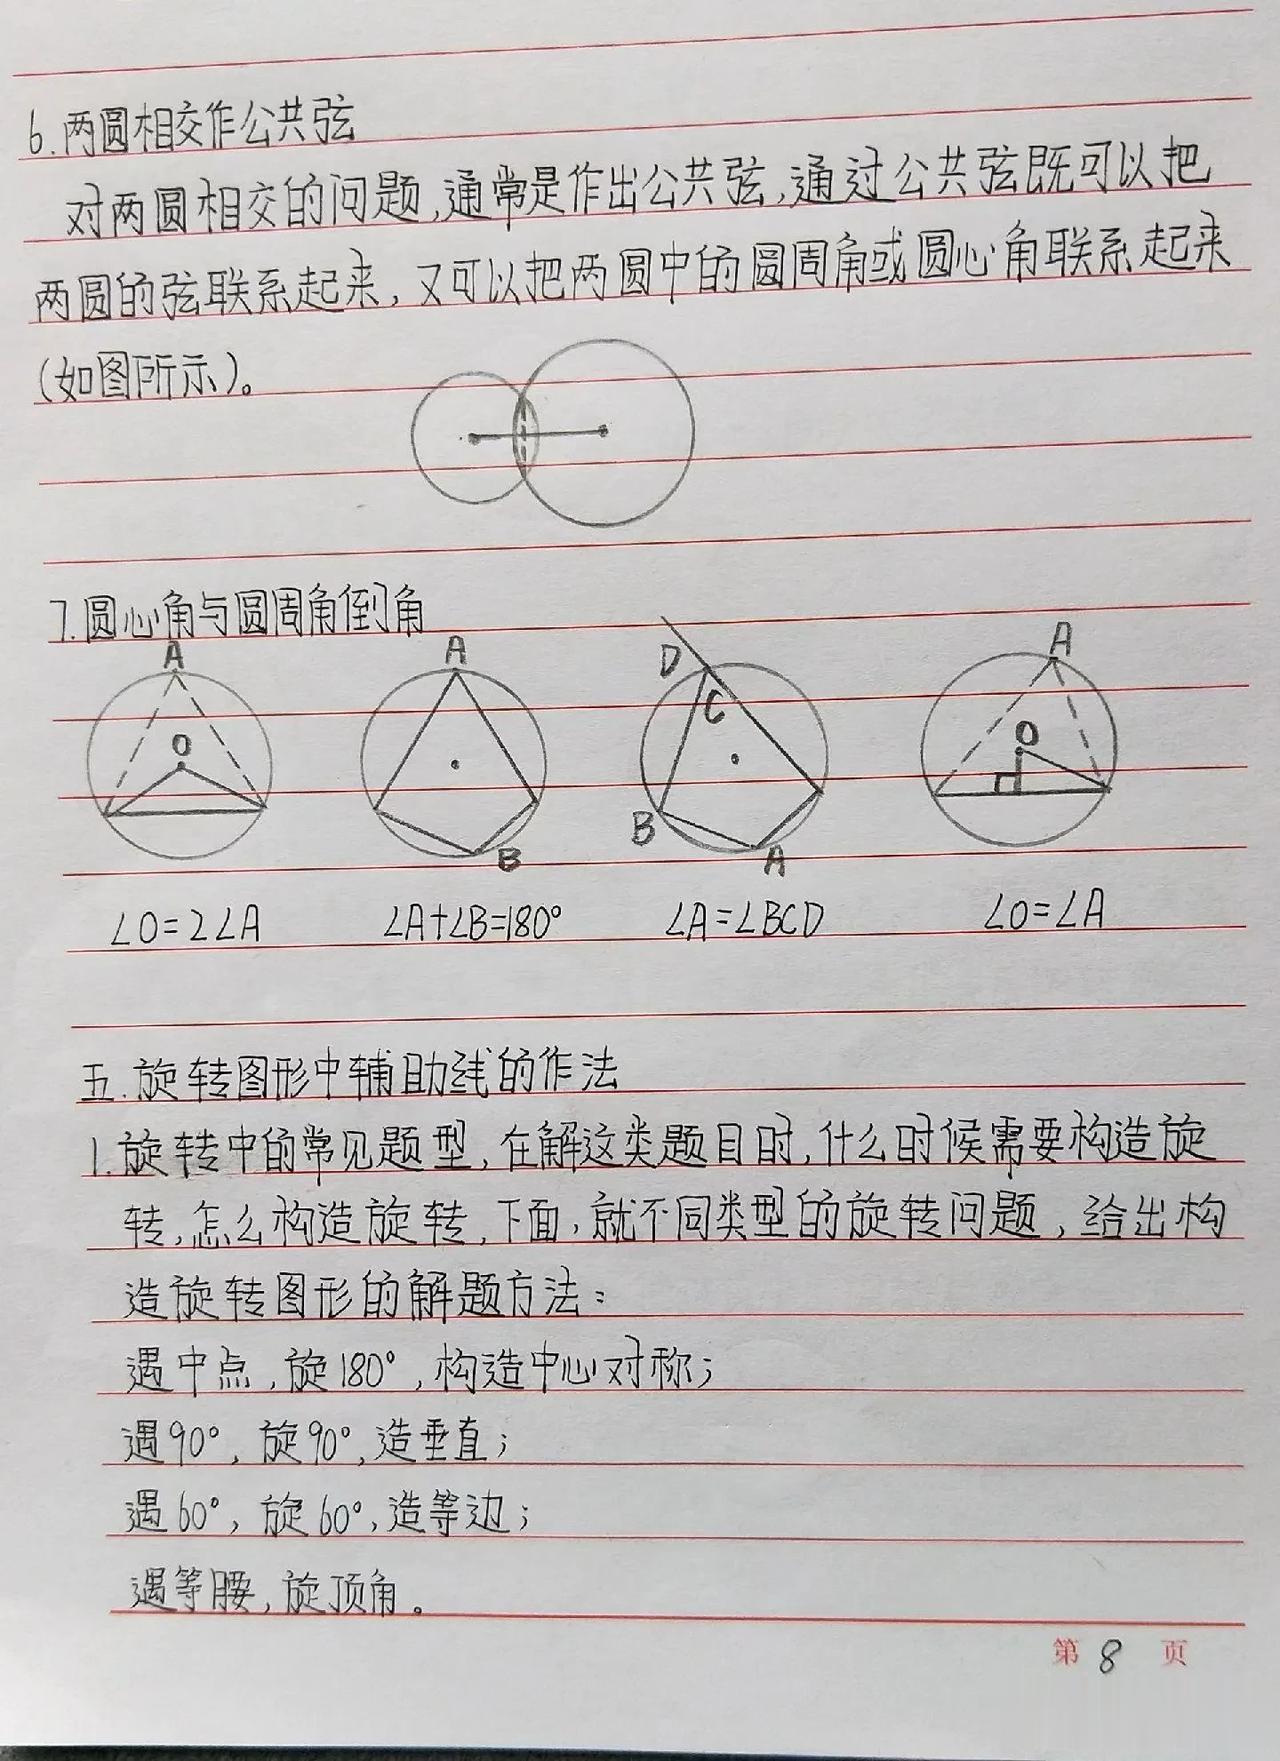 6.两圆相交作公共弦
对两圆相交的问题,通常是作出公共弦,通过公共弦既可以把
两圆的弦联系起来,又可以把两圆中的圆周角或圆心角联系起来
(如图所示)。
7.圆心角与圆周角倒角
A
O
A
B
D
C
B
A
A
O
∠O=2∠A
∠A+∠B=180°
∠A=∠BCD
∠O=∠A
五.旋转图形中辅助线的作法
1.旋转中的常见题型,在解这类题目时,什么时候需要构造旋
转,怎么构造旋转,下面,就不同类型的旋转问题,给出构
造旋转图形的解题方法:
遇中点,旋180°,构造中心对称;
遇90°,旋90°,造垂直;
遇60°,旋60°,造等边;
遇等腰,旋顶角。
第 8 页